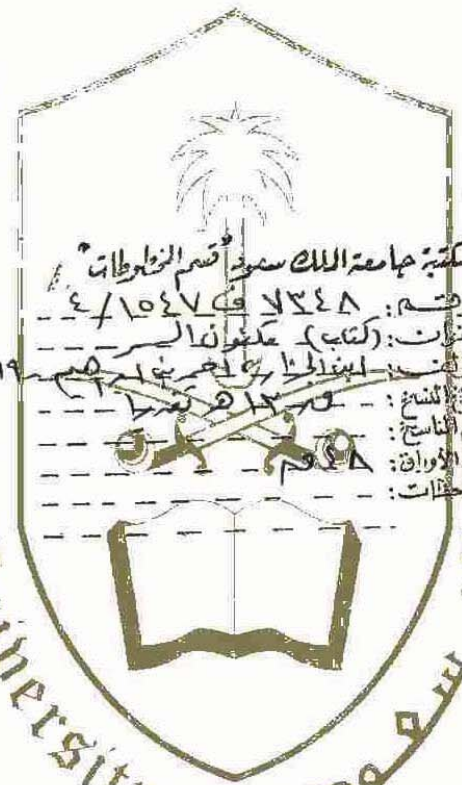 مكتبة جامعة الملك سعود "قسم المخطوطات"
الرقم: ٧٣٤٨ ف ١٥٤٧/٤
العنوان: (كتاب) مكنون السر
المؤلف: ابن الجزار، احمد بن ابراهيم
تاريخ النسخ: ق ١٣ هـ تقديرا
اسم الناسخ:
عدد الأوراق: ٤٨ ق
ملاحظات: